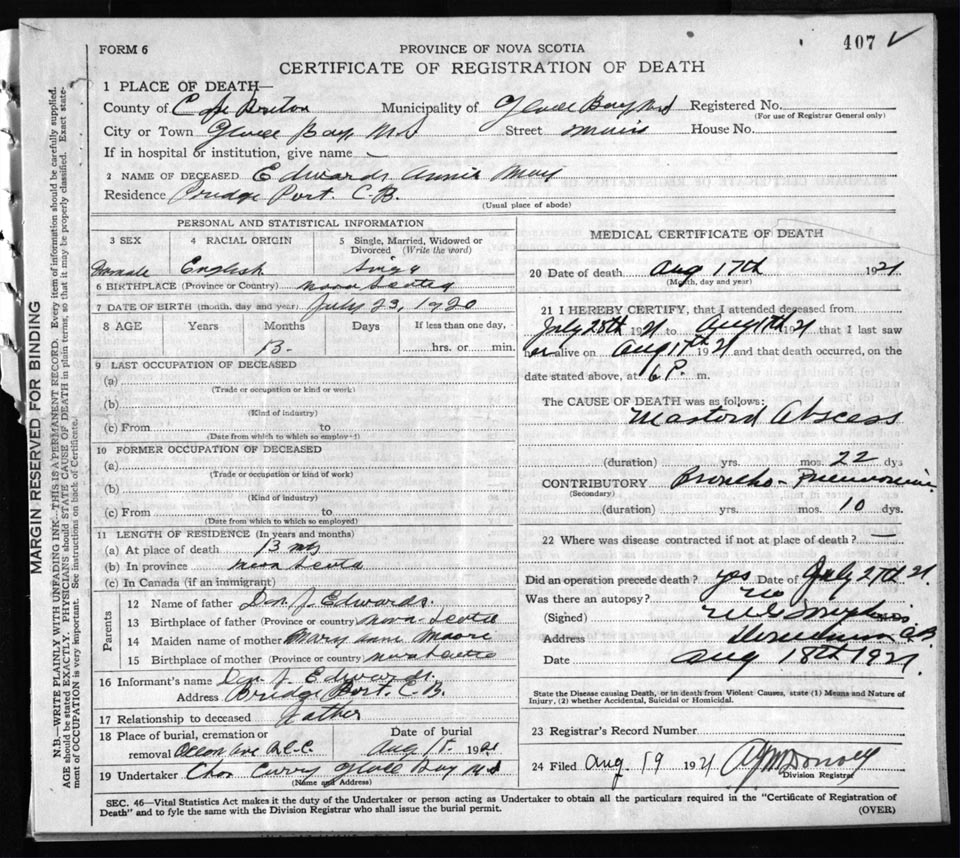 407 ✓
FORM 6
PROVINCE OF NOVA SCOTIA
CERTIFICATE OF REGISTRATION OF DEATH
MARGIN RESERVED FOR BINDING
N.B.—WRITE PLAINLY WITH UNFADING INK—THIS IS A PERMANENT RECORD. Every item of information should be carefully supplied.
AGE should be stated EXACTLY. PHYSICIANS should STATE CAUSE OF DEATH in plain terms, so that it may be properly classified. Exact state-
ment of OCCUPATION is very important. See instructions on back of Certificate.
1 PLACE OF DEATH—
County of Cape Breton Municipality of Glace Bay NS Registered No.
(For use of Registrar General only)
City or Town Glace Bay NS Street House No.
If in hospital or institution, give name —
2 NAME OF DECEASED Edwards Annie May
Residence Bridge Port. C.B.
(Usual place of abode)
PERSONAL AND STATISTICAL INFORMATION
3 SEX 4 RACIAL ORIGIN 5 Single, Married, Widowed or
Divorced (Write the word)
Female English Single
6 BIRTHPLACE (Province or Country) Nova Scotia
7 DATE OF BIRTH (month, day and year) July 23, 1920
8 AGE Years Months Days If less than one day,
13. hrs. or min.
9 LAST OCCUPATION OF DECEASED
(a)
(Trade or occupation or kind or work)
(b)
(Kind of industry)
(c) From to
(Date from which to which so employed)
10 FORMER OCCUPATION OF DECEASED
(a)
(Trade or occupation or kind of work)
(b)
(Kind of industry)
(c) From to
(Date from which to which so employed)
11 LENGTH OF RESIDENCE (In years and months)
(a) At place of death 13 ms
(b) In province Nova Scotia
(c) In Canada (if an immigrant)
Parents
12 Name of father Dan J. Edwards
13 Birthplace of father (Province or country) Nova Scotia
14 Maiden name of mother Mary Ann Moore
15 Birthplace of mother (Province or country) Nova Scotia
16 Informant's name Dan J. Edwards.
Address Bridge Port. C.B.
17 Relationship to deceased Father
18 Place of burial, cremation or Date of burial
removal Ocean Ave R.C.C. Aug 18. 1921
19 Undertaker Chas Curry Glace Bay NS
(Name and Address)
MEDICAL CERTIFICATE OF DEATH
20 Date of death Aug 17th 1921
(Month, day and year)
21 I HEREBY CERTIFY, that I attended deceased from
July 28th 1921 to Aug 17th 1921 that I last saw
her alive on Aug 17th 1921 and that death occurred, on the
date stated above, at 6 P. m.
The CAUSE OF DEATH was as follows:
Mastoid Abscess
(duration) yrs. mos. 22 dys
CONTRIBUTORY Broncho-Pneumonia
(Secondary)
(duration) yrs. mos. 10 dys.
22 Where was disease contracted if not at place of death? —
Did an operation precede death? yes Date of July 27th 21.
Was there an autopsy? No
(Signed)
Address C.B.
Date Aug 18th 1921.
State the Disease causing Death, or in death from Violent Causes, state (1) Means and Nature of
Injury, (2) whether Accidental, Suicidal or Homicidal.
23 Registrar's Record Number
24 Filed Aug. 19 1921
Division Registrar
SEC. 46—Vital Statistics Act makes it the duty of the Undertaker or person acting as Undertaker to obtain all the particulars required in the "Certificate of Registration of
Death" and to fyle the same with the Division Registrar who shall issue the burial permit. (OVER)